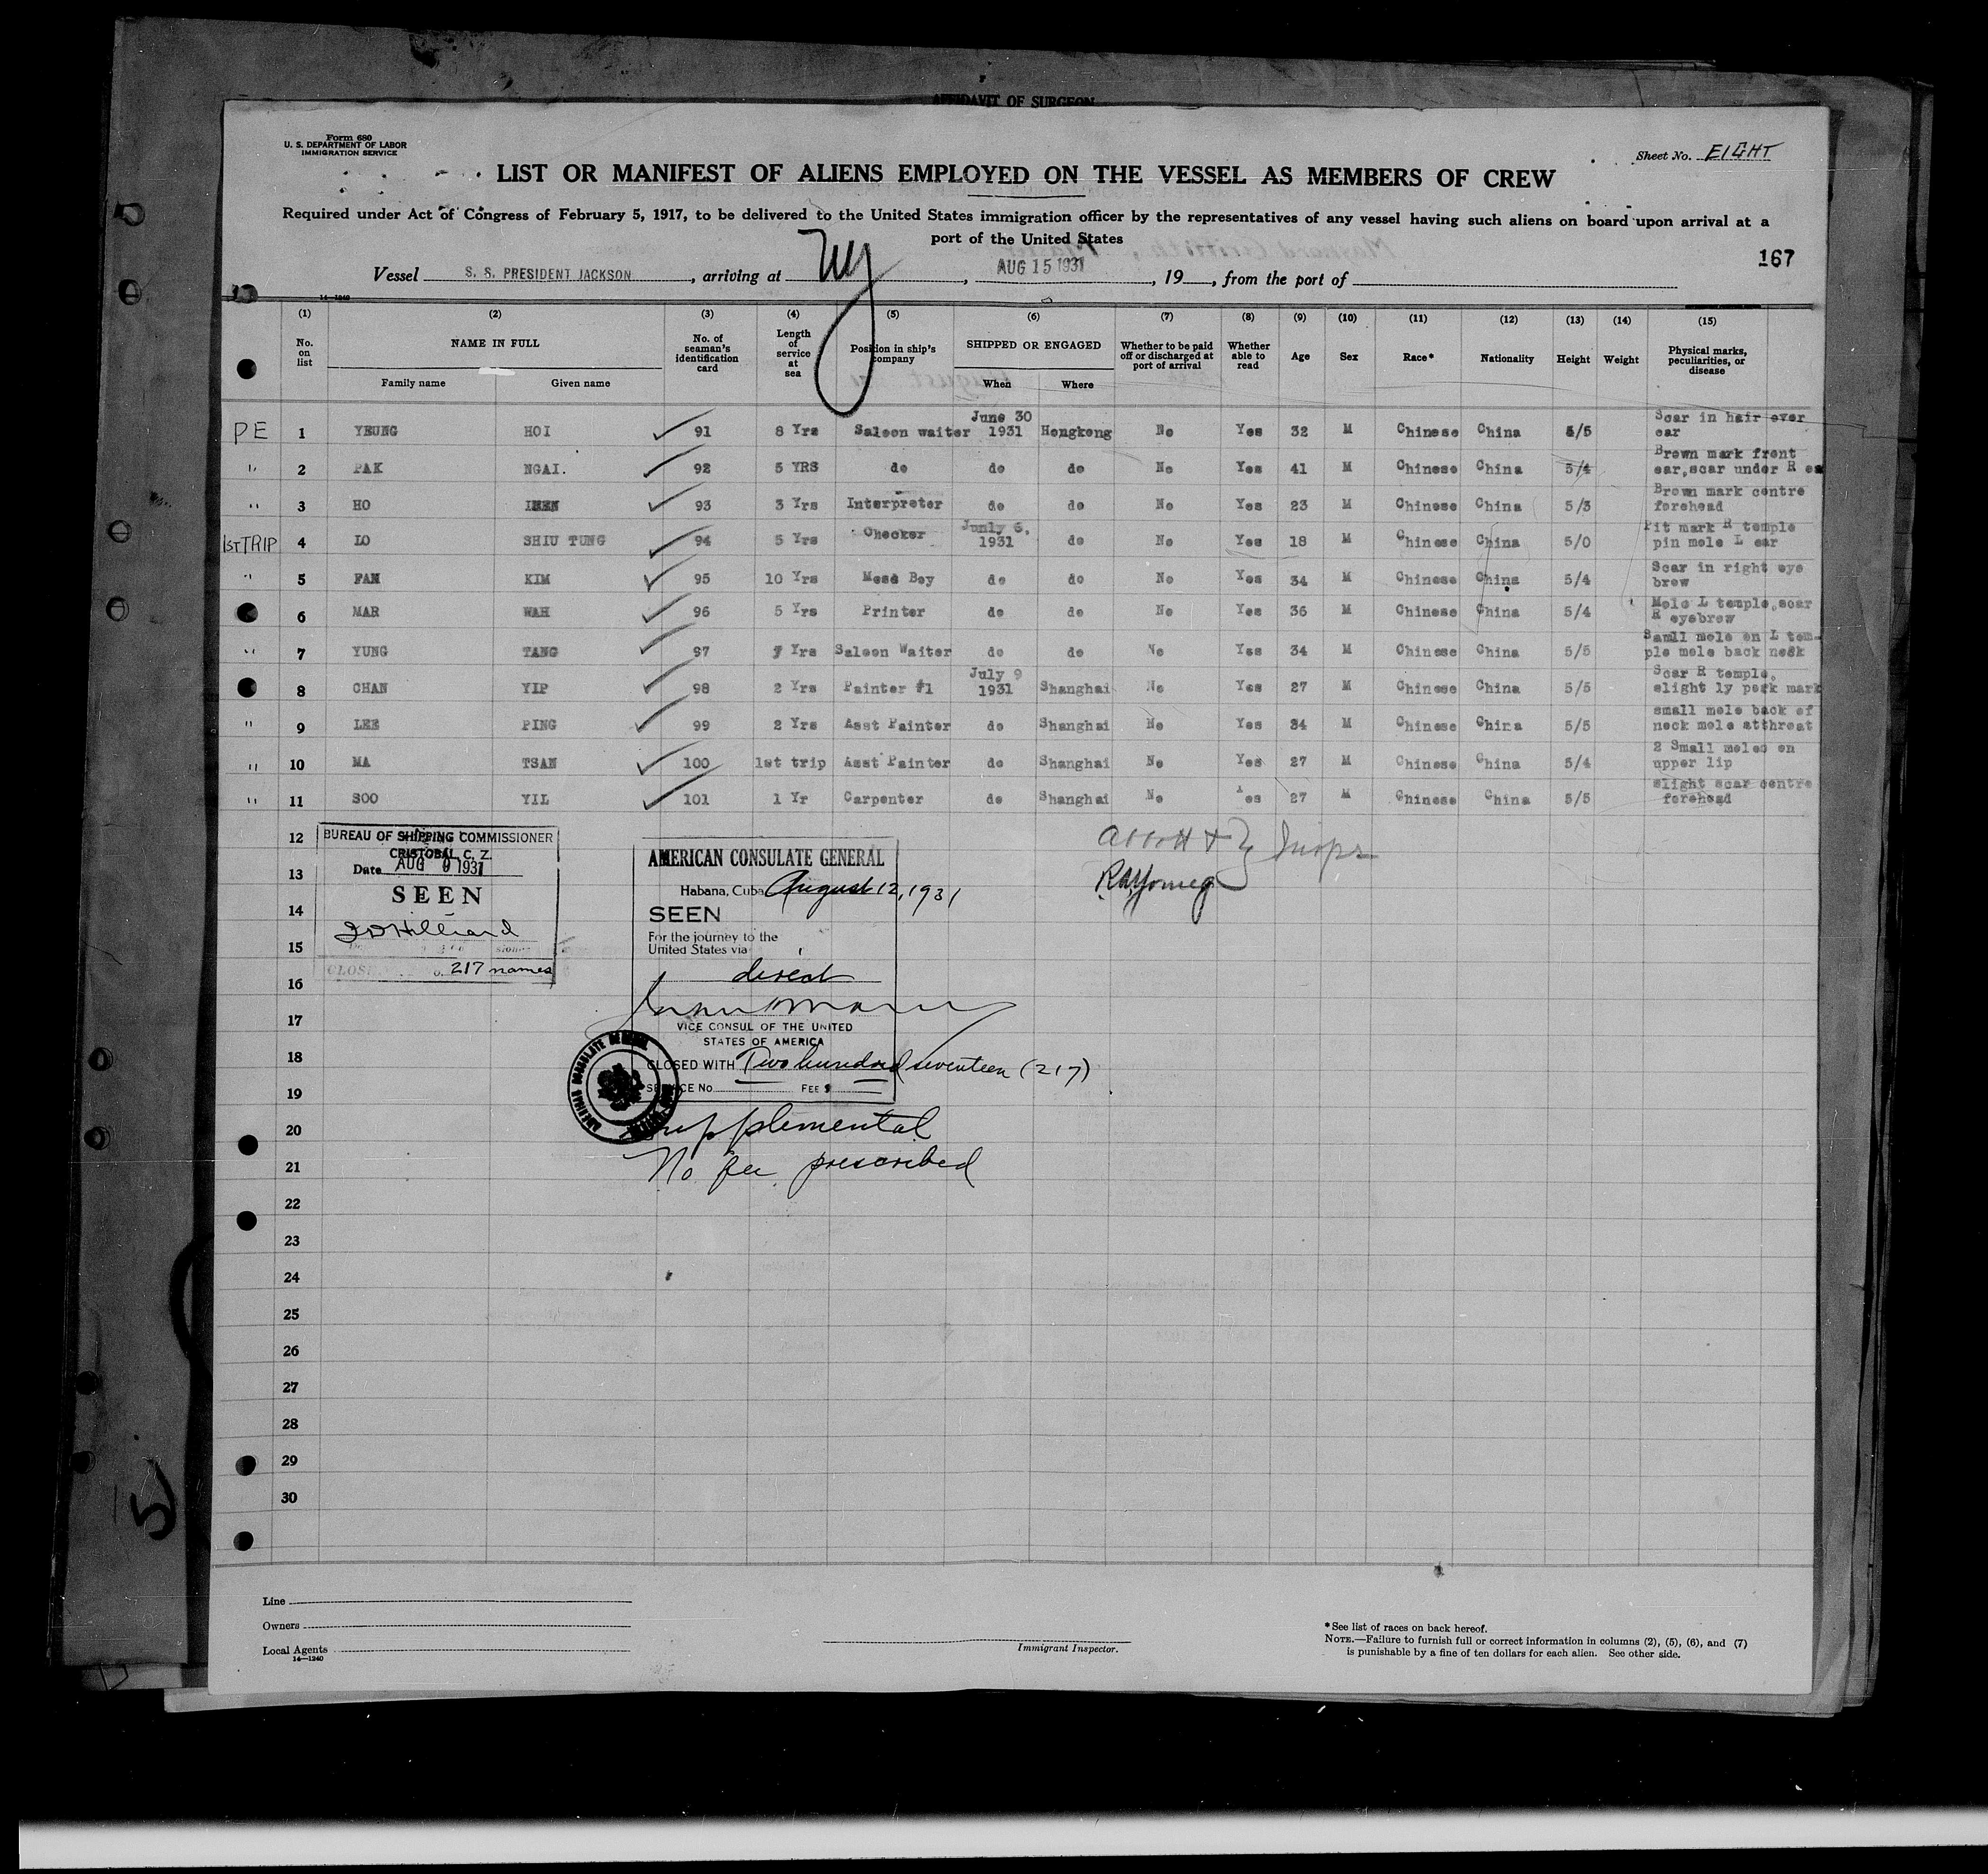 AFFIDAVIT OF SURGEON
Form 680
U. S. DEPARTMENT OF LABOR
IMMIGRATION SERVICE
Sheet No. EIGHT
LIST OR MANIFEST OF ALIENS EMPLOYED ON THE VESSEL AS MEMBERS OF CREW
Required under Act of Congress of February 5, 1917, to be delivered to the United States immigration officer by the representatives of any vessel having such aliens on board upon arrival at a
port of the United States
167
Vessel S. S. PRESIDENT JACKSON, arriving at NY, AUG 15 1931, 19 , from the port of
14—1240
(1) (2) (3) (4) (5) (6) (7) (8) (9) (10) (11) (12) (13) (14) (15)
No. on list NAME IN FULL Family name Given name No. of seaman's identification card Length of service at sea Position in ship's company SHIPPED OR ENGAGED When Where Whether to be paid off or discharged at port of arrival Whether able to read Age Sex Race* Nationality Height Weight Physical marks, peculiarities, or disease
PE 1 YEUNG HOI 91 8 Yrs Saloon waiter June 30 1931 Hongkong No Yes 32 M Chinese China 5/5 Scar in hair over ear
" 2 PAK NGAI. 92 5 YRS do do do No Yes 41 M Chinese China 5/4 Brown mark front ear,scar under R ea
" 3 HO 93 3 Yrs Interpreter do do No Yes 23 M Chinese China 5/3 Brown mark centre forehead
1ST TRIP 4 LO SHIU TUNG 94 5 Yrs Checker 6, 1931 do No Yes 18 M Chinese China 5/0 Pit mark R temple pin mole L ear
" 5 FAN KIM 95 10 Yrs Mess Boy do do No Yes 34 M Chinese China 5/4 Scar in right eye brow
6 MAR WAH 96 5 Yrs Printer do do No Yes 36 M Chinese China 5/4 Mole L temple,scar R eyebrow
" 7 YUNG TANG 97 7 Yrs Saloon Waiter do do No Yes 34 M Chinese China 5/5 Samll mole on L tem- ple mole back neck
8 CHAN YIP 98 2 Yrs Painter #1 July 9 1931 Shanghai No Yes 27 M Chinese China 5/5 Scar R temple, slight ly pock mark
" 9 LEE PING 99 2 Yrs Asst Painter do Shanghai No Yes 34 M Chinese China 5/5 small mole back of neck mole atthroat
" 10 MA TSAN 100 1st trip Asst Painter do Shanghai No Yes 27 M Chinese China 5/4 2 Small moles on upper lip
" 11 SOO YIL 101 1 Yr Carpenter do Shanghai No Yes 27 M Chinese China 5/5 slight scar centre forehead
12
13
14
15
16
17
18
19
20
21
22
23
24
25
26
27
28
29
30
BUREAU OF SHIPPING COMMISSIONER
CRISTOBAL, C. Z.
Date AUG 9 1931
SEEN
Hilliard
217 names
AMERICAN CONSULATE GENERAL
Habana, Cuba August 12, 1931
SEEN
For the journey to the
United States via
direct
VICE CONSUL OF THE UNITED
STATES OF AMERICA
CLOSED WITH Two hundred seventeen (217)
SERVICE No. FEE $
Supplemental
No fee prescribed
Line
Owners
Local Agents
14—1240
Immigrant Inspector.
*See list of races on back hereof.
NOTE.—Failure to furnish full or correct information in columns (2), (5), (6), and (7)
is punishable by a fine of ten dollars for each alien. See other side.